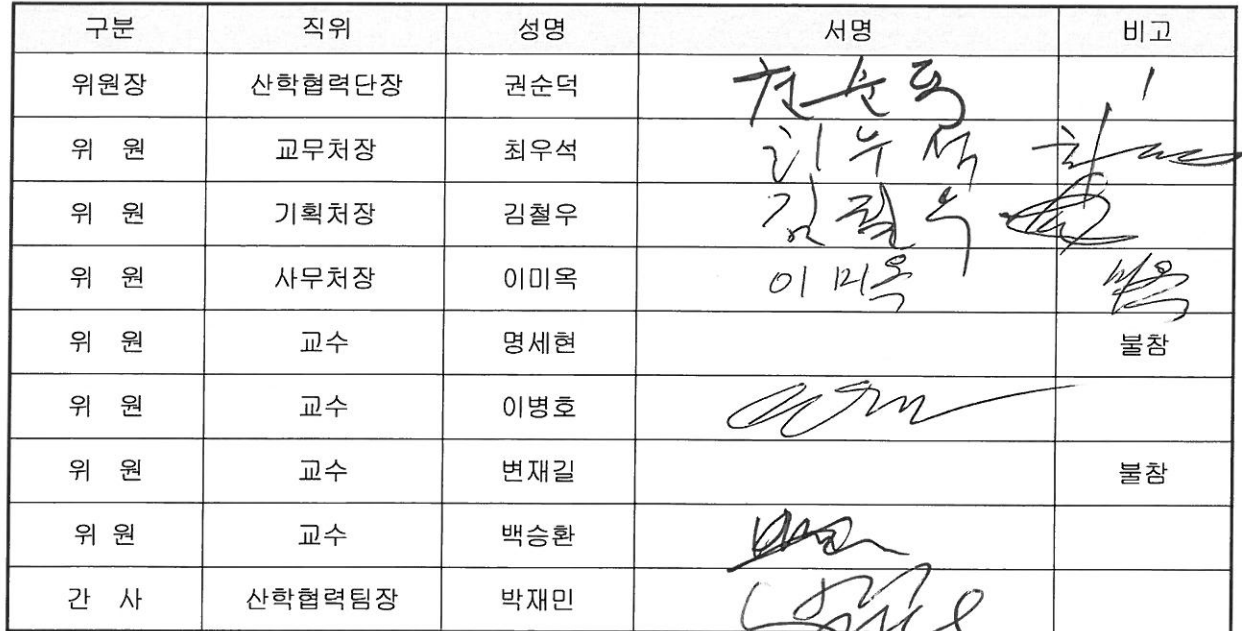 구분 직위 성명 서명 비고
위원장 산학협력단장 권순덕 권순덕
위 원 교무처장 최우석 최우석
위 원 기획처장 김철우 김철우
위 원 사무처장 이미옥 이미옥 미옥
위 원 교수 명세현 불참
위 원 교수 이병호
위 원 교수 변재길 불참
위 원 교수 백승환
간 사 산학협력팀장 박재민